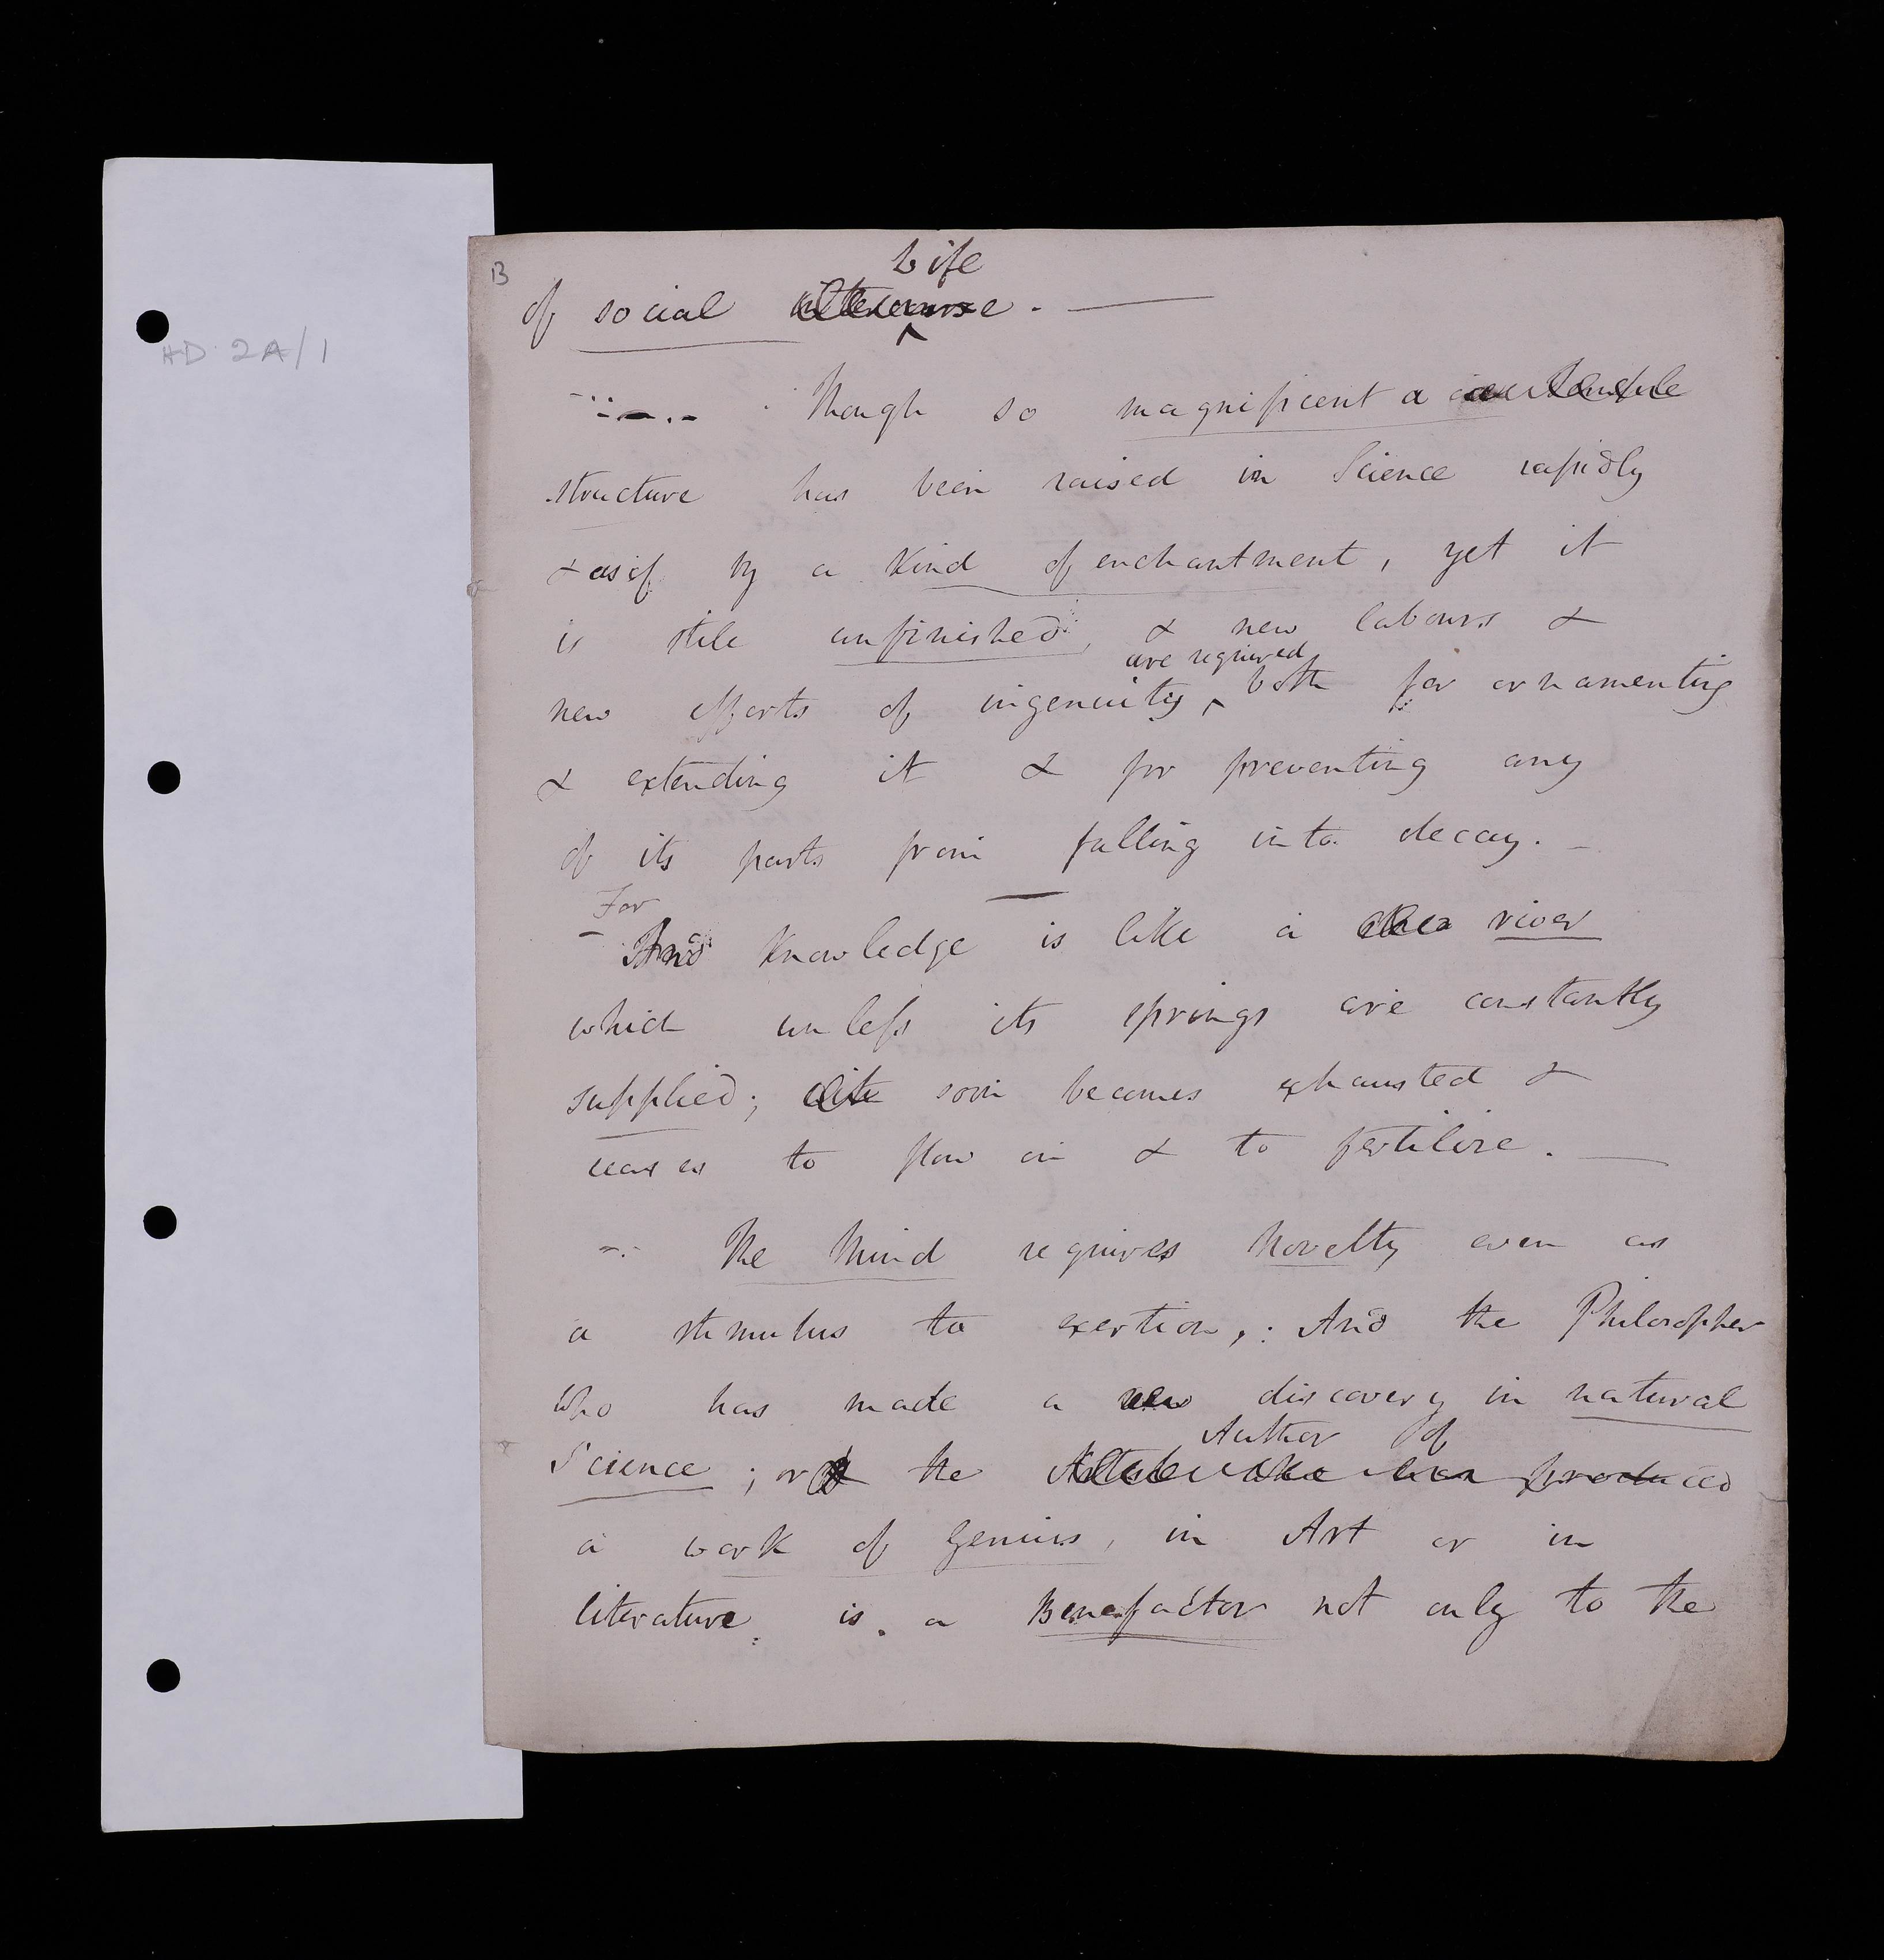 HD 2A/1
13
Life
of social intercourse. —
Though so magnificent a
structure has been raised in Science rapidly
& as if by a kind of enchantment, yet it
is still unfinished, & new labours &
are required
new efforts of ingenuity, both for ornamenting
& extending it & for preventing any
of its parts from falling into decay. —
For
And knowledge is like a river
which unless its springs are constantly
supplied; soon becomes exhausted &
ceases to flow on & to fertilize. —
The Mind requires Novelty even as
a stimulus to exertion,: And the Philosopher
who has made a new discovery in natural
Author of
Science; or the produced
a work of Genius, in Art or in
literature is a Benefactor not only to the